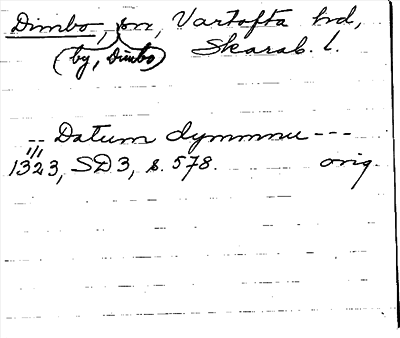 Dimbo, sn, Vartofta hd,
(by, Dimbo) Skarab. l.
-- Datum dymmnu ---
1/1
1323, SD3, s. 578. orig.